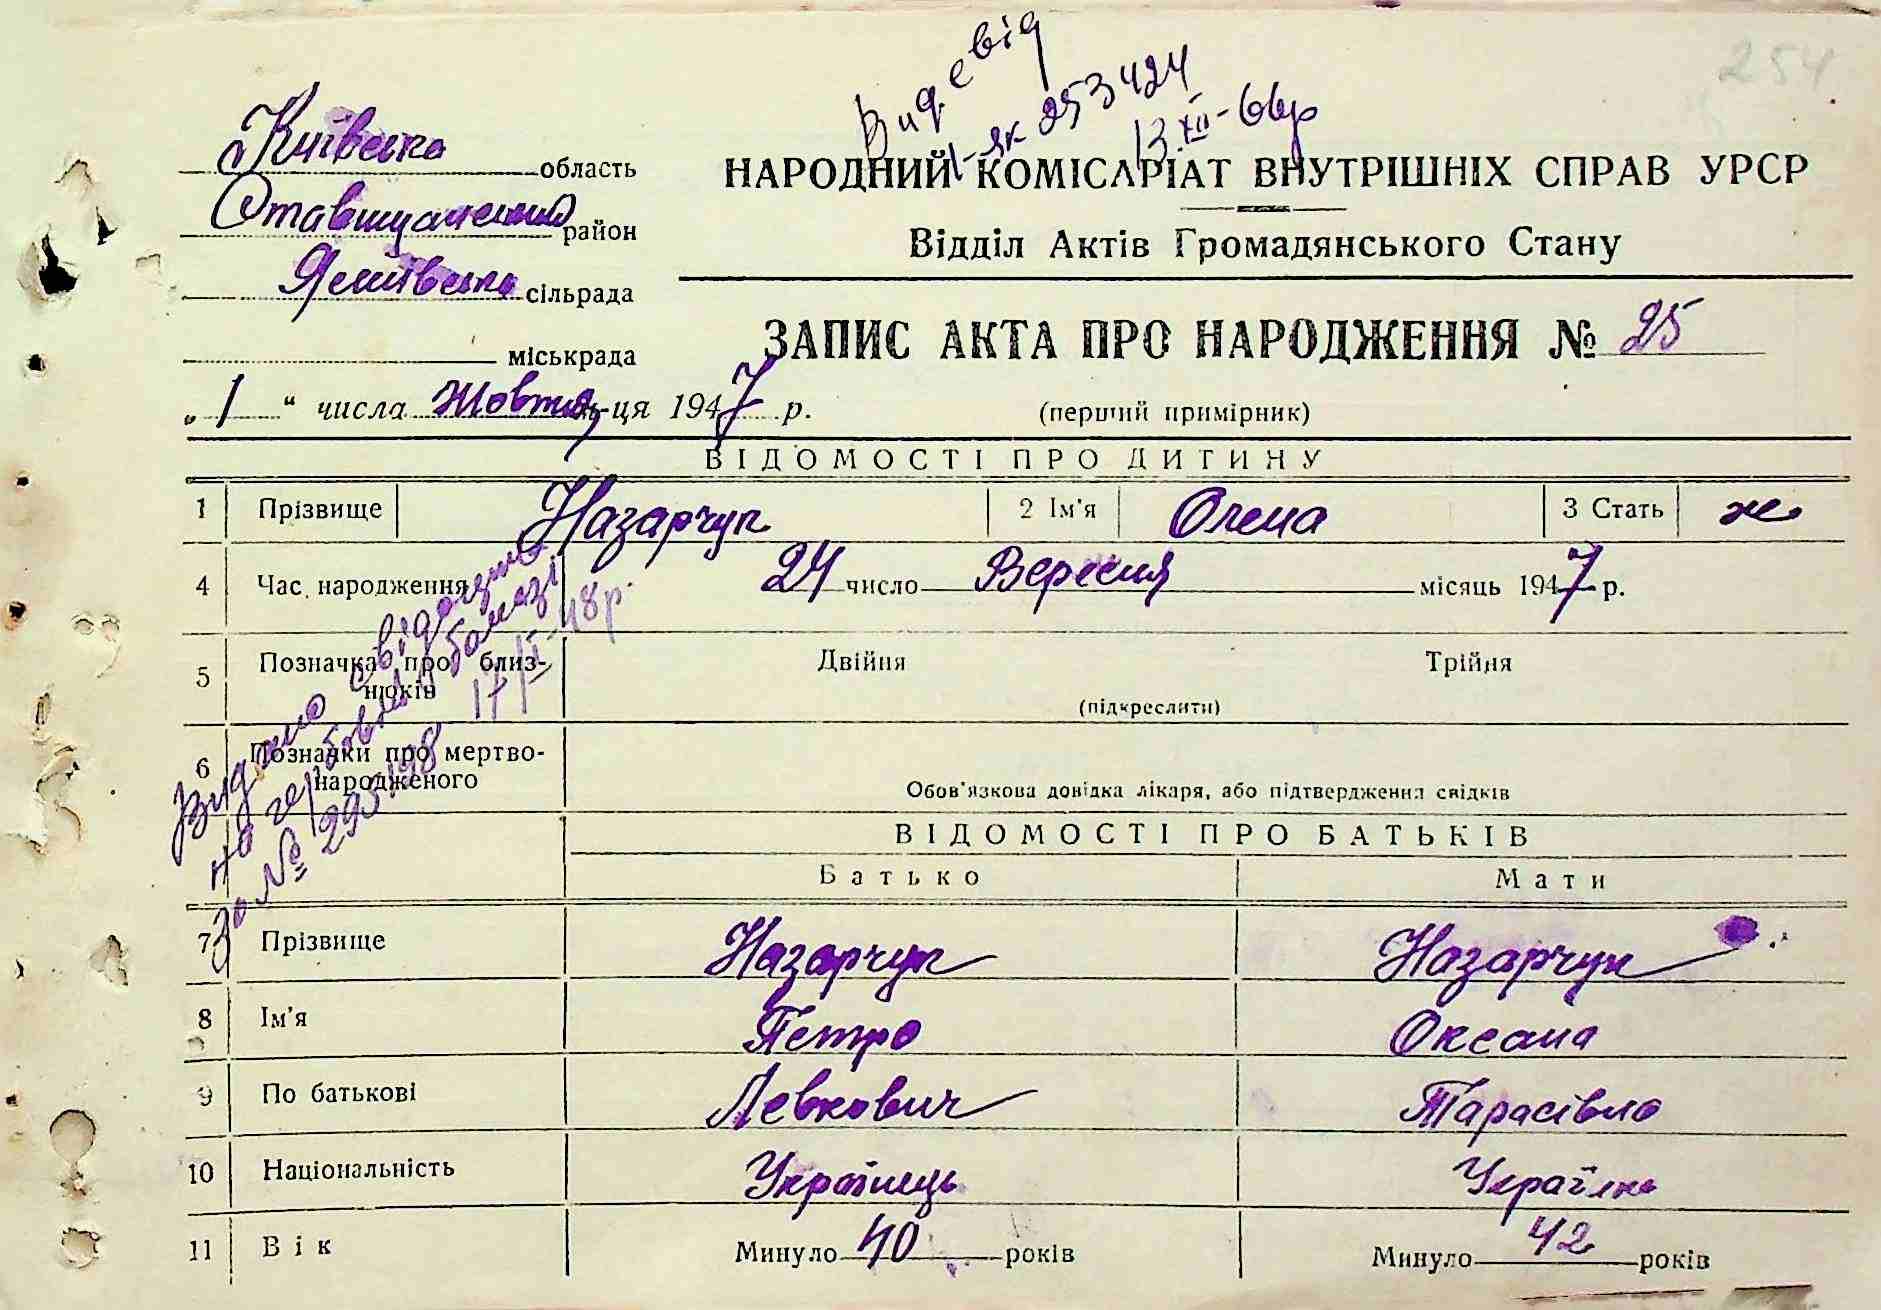 254
Вид. свід
І-ЯК 253424
13.XII-66р
Київська область
Ставищанський район
сільрада
міськрада
НАРОДНИЙ КОМІСАРІАТ ВНУТРІШНІХ СПРАВ УРСР
Відділ Актів Громадянського Стану
ЗАПИС АКТА ПРО НАРОДЖЕННЯ № 25
„ 1 " числа Жовтня м-ця 1947 р.
(перший примірник)
ВІДОМОСТІ ПРО ДИТИНУ
1 Прізвище Назарчук 2 Ім'я Олена 3 Стать ж
4 Час народження 24 число Вересня місяць 1947 р.
5 Позначка про близнюків Двійня Трійня
(підкреслити)
6 Познанки про мертвонародженого
Обов'язкова довідка лікаря, або підтвердження свідків
Видано свідоцтво
на гербовій бомазі
за № 293198 17/II-48р.
ВІДОМОСТІ ПРО БАТЬКІВ
Батько Мати
7 Прізвище Назарчук Назарчук
8 Ім'я Петро Оксана
9 По батькові Левкович Тарасівна
10 Національність Українець Українка
11 Вік Минуло 40 років Минуло 42 років